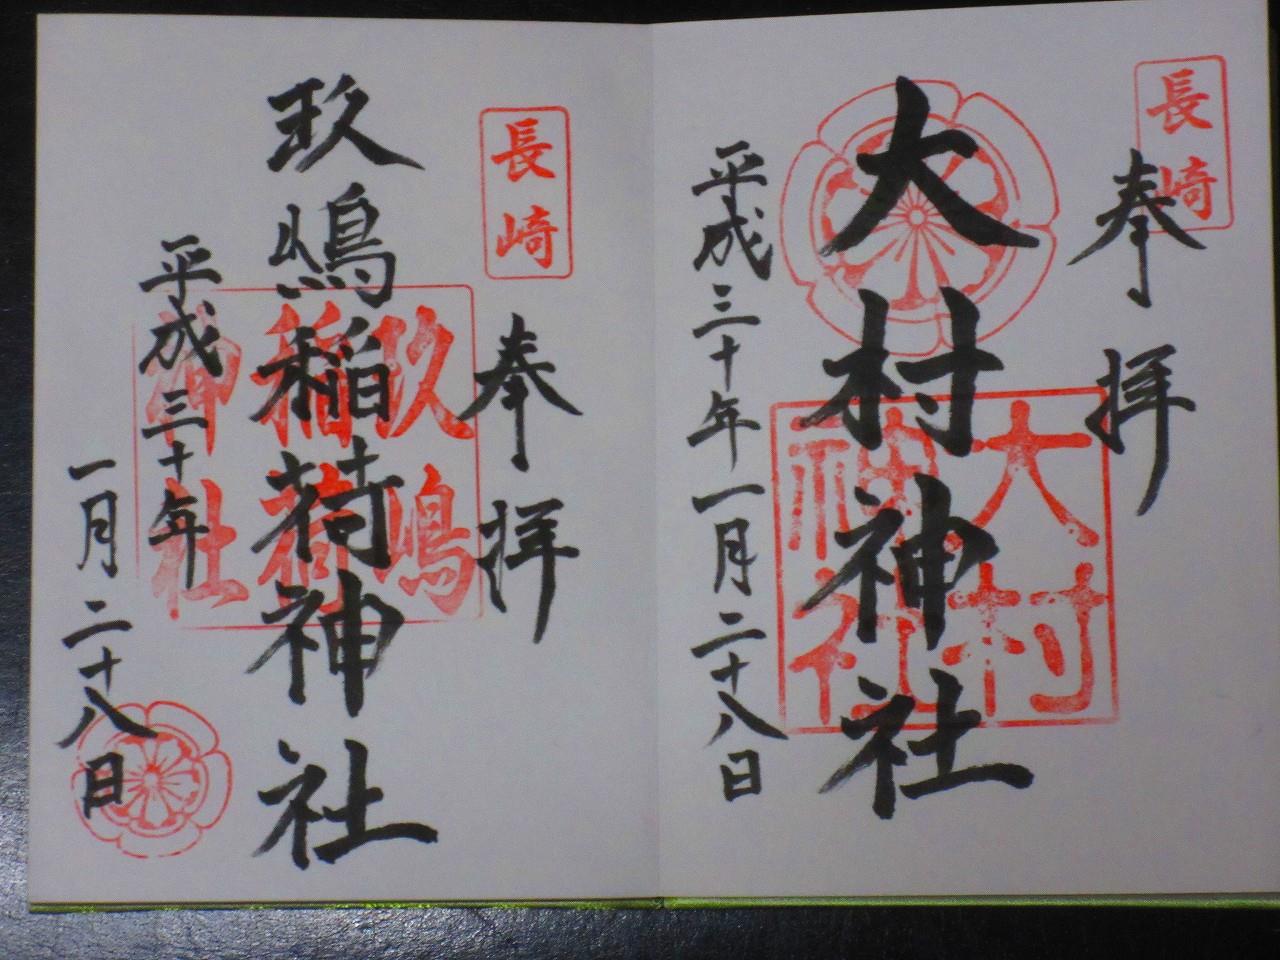 長崎
奉拝
大村神社
大村
神社
平成三十年一月二十八日
長崎
奉拝
玖嶋稲荷神社
玖嶋
稲荷
御社
平成三十年
一月二十八日